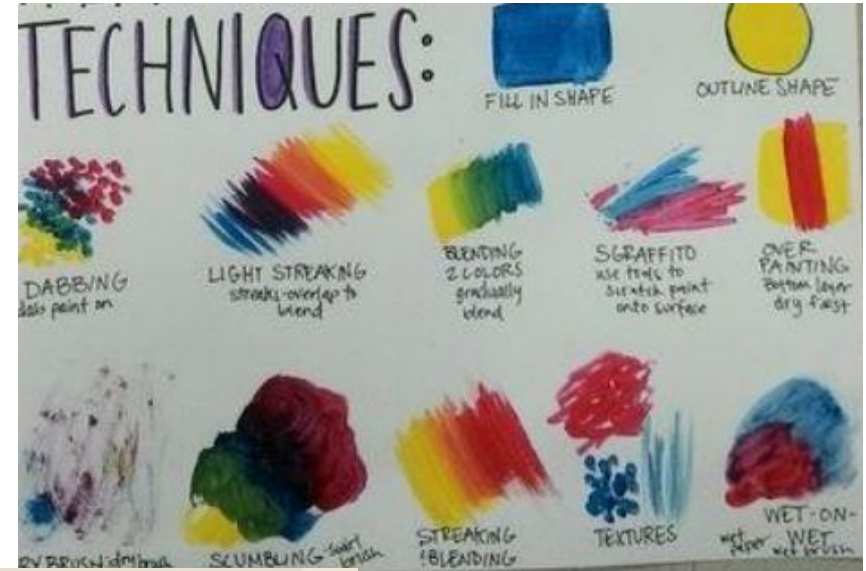 TECHNIQUES:
FILL IN SHAPE
OUTLINE SHAPE
DABBING
dab paint on
LIGHT STREAKING
streaks overlap to
blend
BLENDING
2 COLORS
gradually
blend
SGRAFFITO
use tools to
scratch paint
onto surface
OVER
PAINTING
Bottom layer
dry first
RY BRUSH-dry brush
SCUMBLING-swirl
brush
STREAKING
&BLENDING
TEXTURES
WET-ON-
WET
wet
paper
wet brush